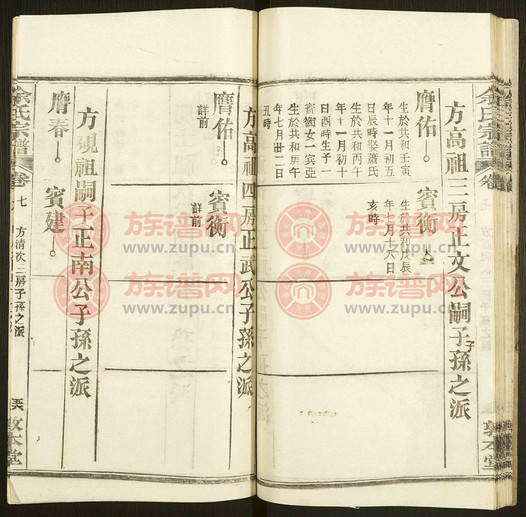 余氏宗譜
卷
敦本堂
方高祖三房正文公嗣子孫之派
膺佑
生於共和壬寅
年十一月初五
日辰時娶蕭氏
生於共和丙午
年十一月初十
日酉時生子一
賓衡女一賓亞
生於共和庚午
年七月廿二日
丑時
賓衡
生於共和戊辰
年七月十八日
亥時
方高祖四房正武公子孫之派
膺佑
詳前
賓衡
詳前
方硯祖嗣子正南公子孫之派
膺春
賓建
余氏宗譜
卷
七
方清次三房子孫之派
敦本堂
族谱网
www.zupu.cn
族谱网
www.zupu.cn
族谱网
www.zupu.cn
族谱网
www.zupu.cn